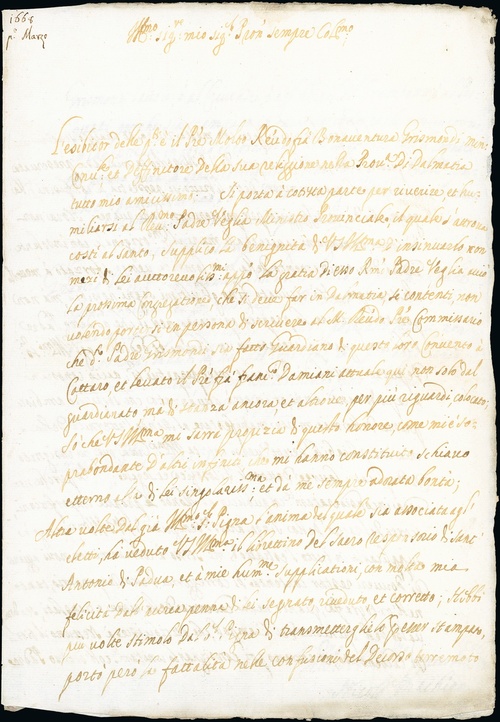 1668
p.º Marzo
Ill.mo Sig.re mio Sig.r Pron' Sempre Col.mo
L'esibitor della p.te è il Pre Molto Reudo frà Bonauentura Grismondi min.
Conu.le et Definitore della sua religione nella Prou.a Di Dalmatia
tutto mio amicissimo. Si porta à cotesta parte per riuerire, et hu-
miliarsi al Padre Veglia Ministro Prouinciale, il quale s'attroua
costì al Santo, Supplico la benignità di V.S. Ill.ma d'insinuarlo non
meri di lei auttoreuoliss.mi appò la gratia di esso R.mo Padre Veglia
la prossima Congregatione che si deue far in Dalmatia, si contenti, non
uolendo portarsi in persona di scriuere al M. Reudo Pre Commissario
che d.o Padre Grismondi sia fatto Guardiano di questo Conuento à
Cattaro, et leuato il Pre frà Fran.co Damiani attuale qui, non solo dal
guardianato mà di stanza ancora, et altroue, per più riguardi colocato;
Sò che V.S. Ill.ma mi sarrà propizia di questo honore, come mi è so-
prabondante d'altri infiniti che mi hanno constituito schiauo
etterno di lei singolariss.ma et da me sempre adorata bontà;
Altra uolta dal già Ill.mo S.r Pigna l'anima del quale sia associata agl'
eletti, hà ueduto V.S. Ill.ma il librettino del Sacro responsorio di Sant'
Antonio di Padua, et à mie hum.me Supplicationi, con molta mia
felicità dall'aurea penna di lei segnato, riueduto et corretto; Hebbi
più uolte stimolo dal S.r Pigna di transmetterglielo per esser stampato,
portò però la fattalità nelle confusioni del decorso terremoto